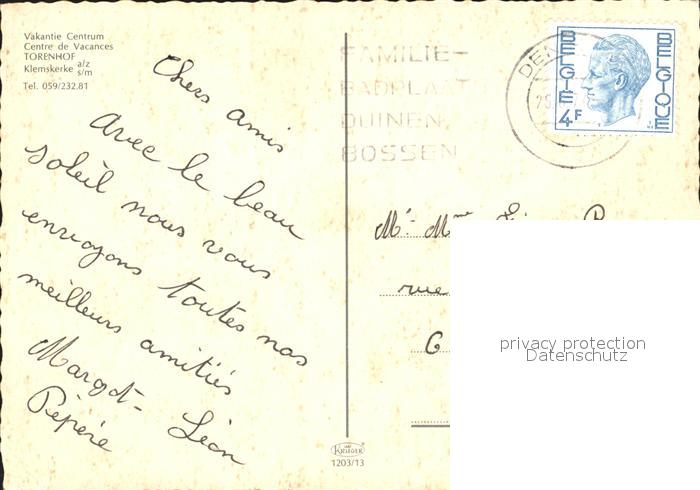 Vakantie Centrum
Centre de Vacances
TORENHOF
Klemskerke a/z s/m
Tel. 059/232.81
Chers amis
Avec le beau
soleil nous vous
envoyons toutes nos
meilleurs amitiés
Margot - Léon
Pépère
FAMILIE-
BADPLAATS
DUINEN,
BOSSEN
BELGIË
4F
BELGIQUE
Mr. Mme
rue
6
privacy protection
Datenschutz
KRÜGER
1203/13